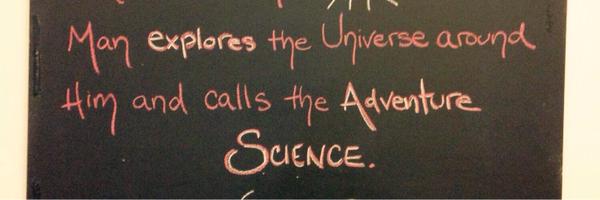 Man explores the Universe around
Him and calls the Adventure
SCIENCE.